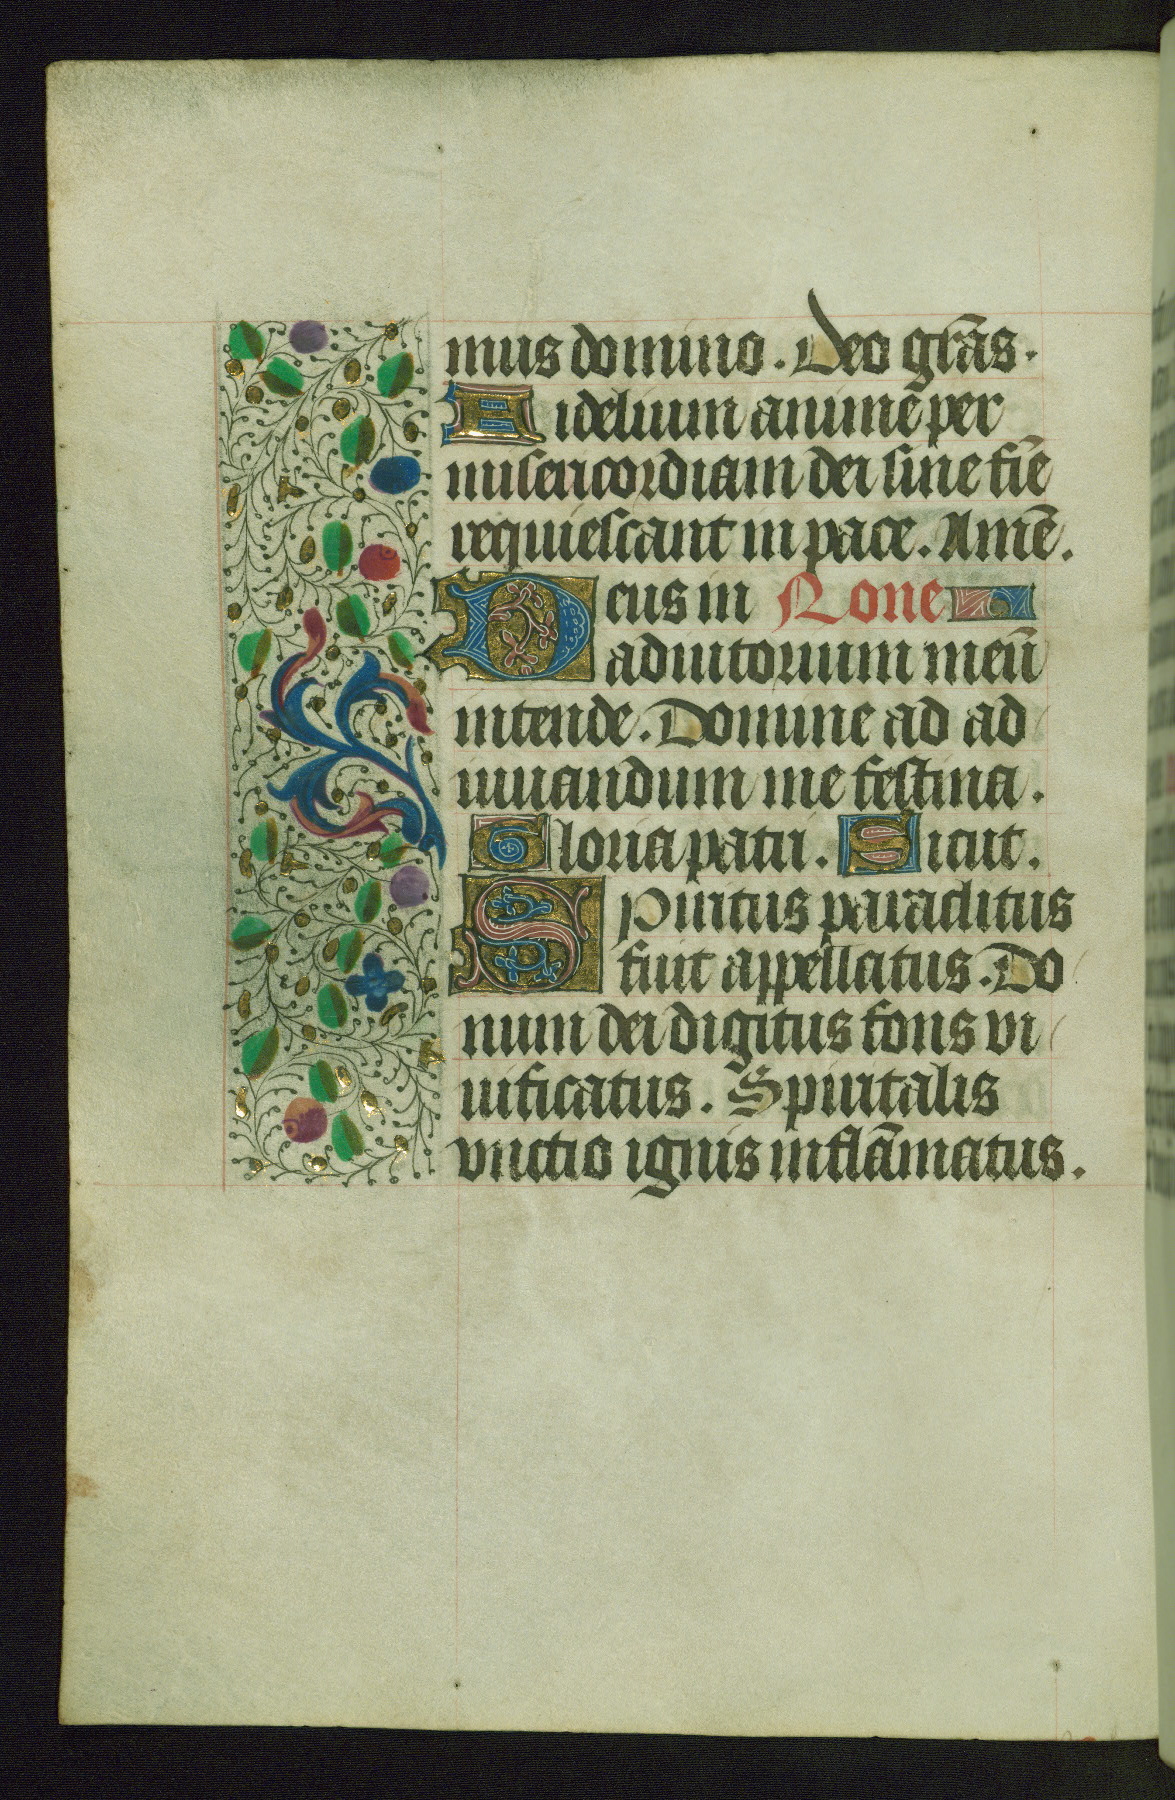 mus domino. Deo grãs.
Fidelium anime per
misericordiam dei sine fĩe
requiescant in pace. Amẽ.
Deus in None
adiutorium meũ
intende. Domine ad ad
iuuandum me festina.
Gloria patri. Sicut.
Spiritus paraclitus
fuit appellatus. Do
num dei digitus fons vi
uificatus. Spiritalis
vnctio ignis inflãmatus.